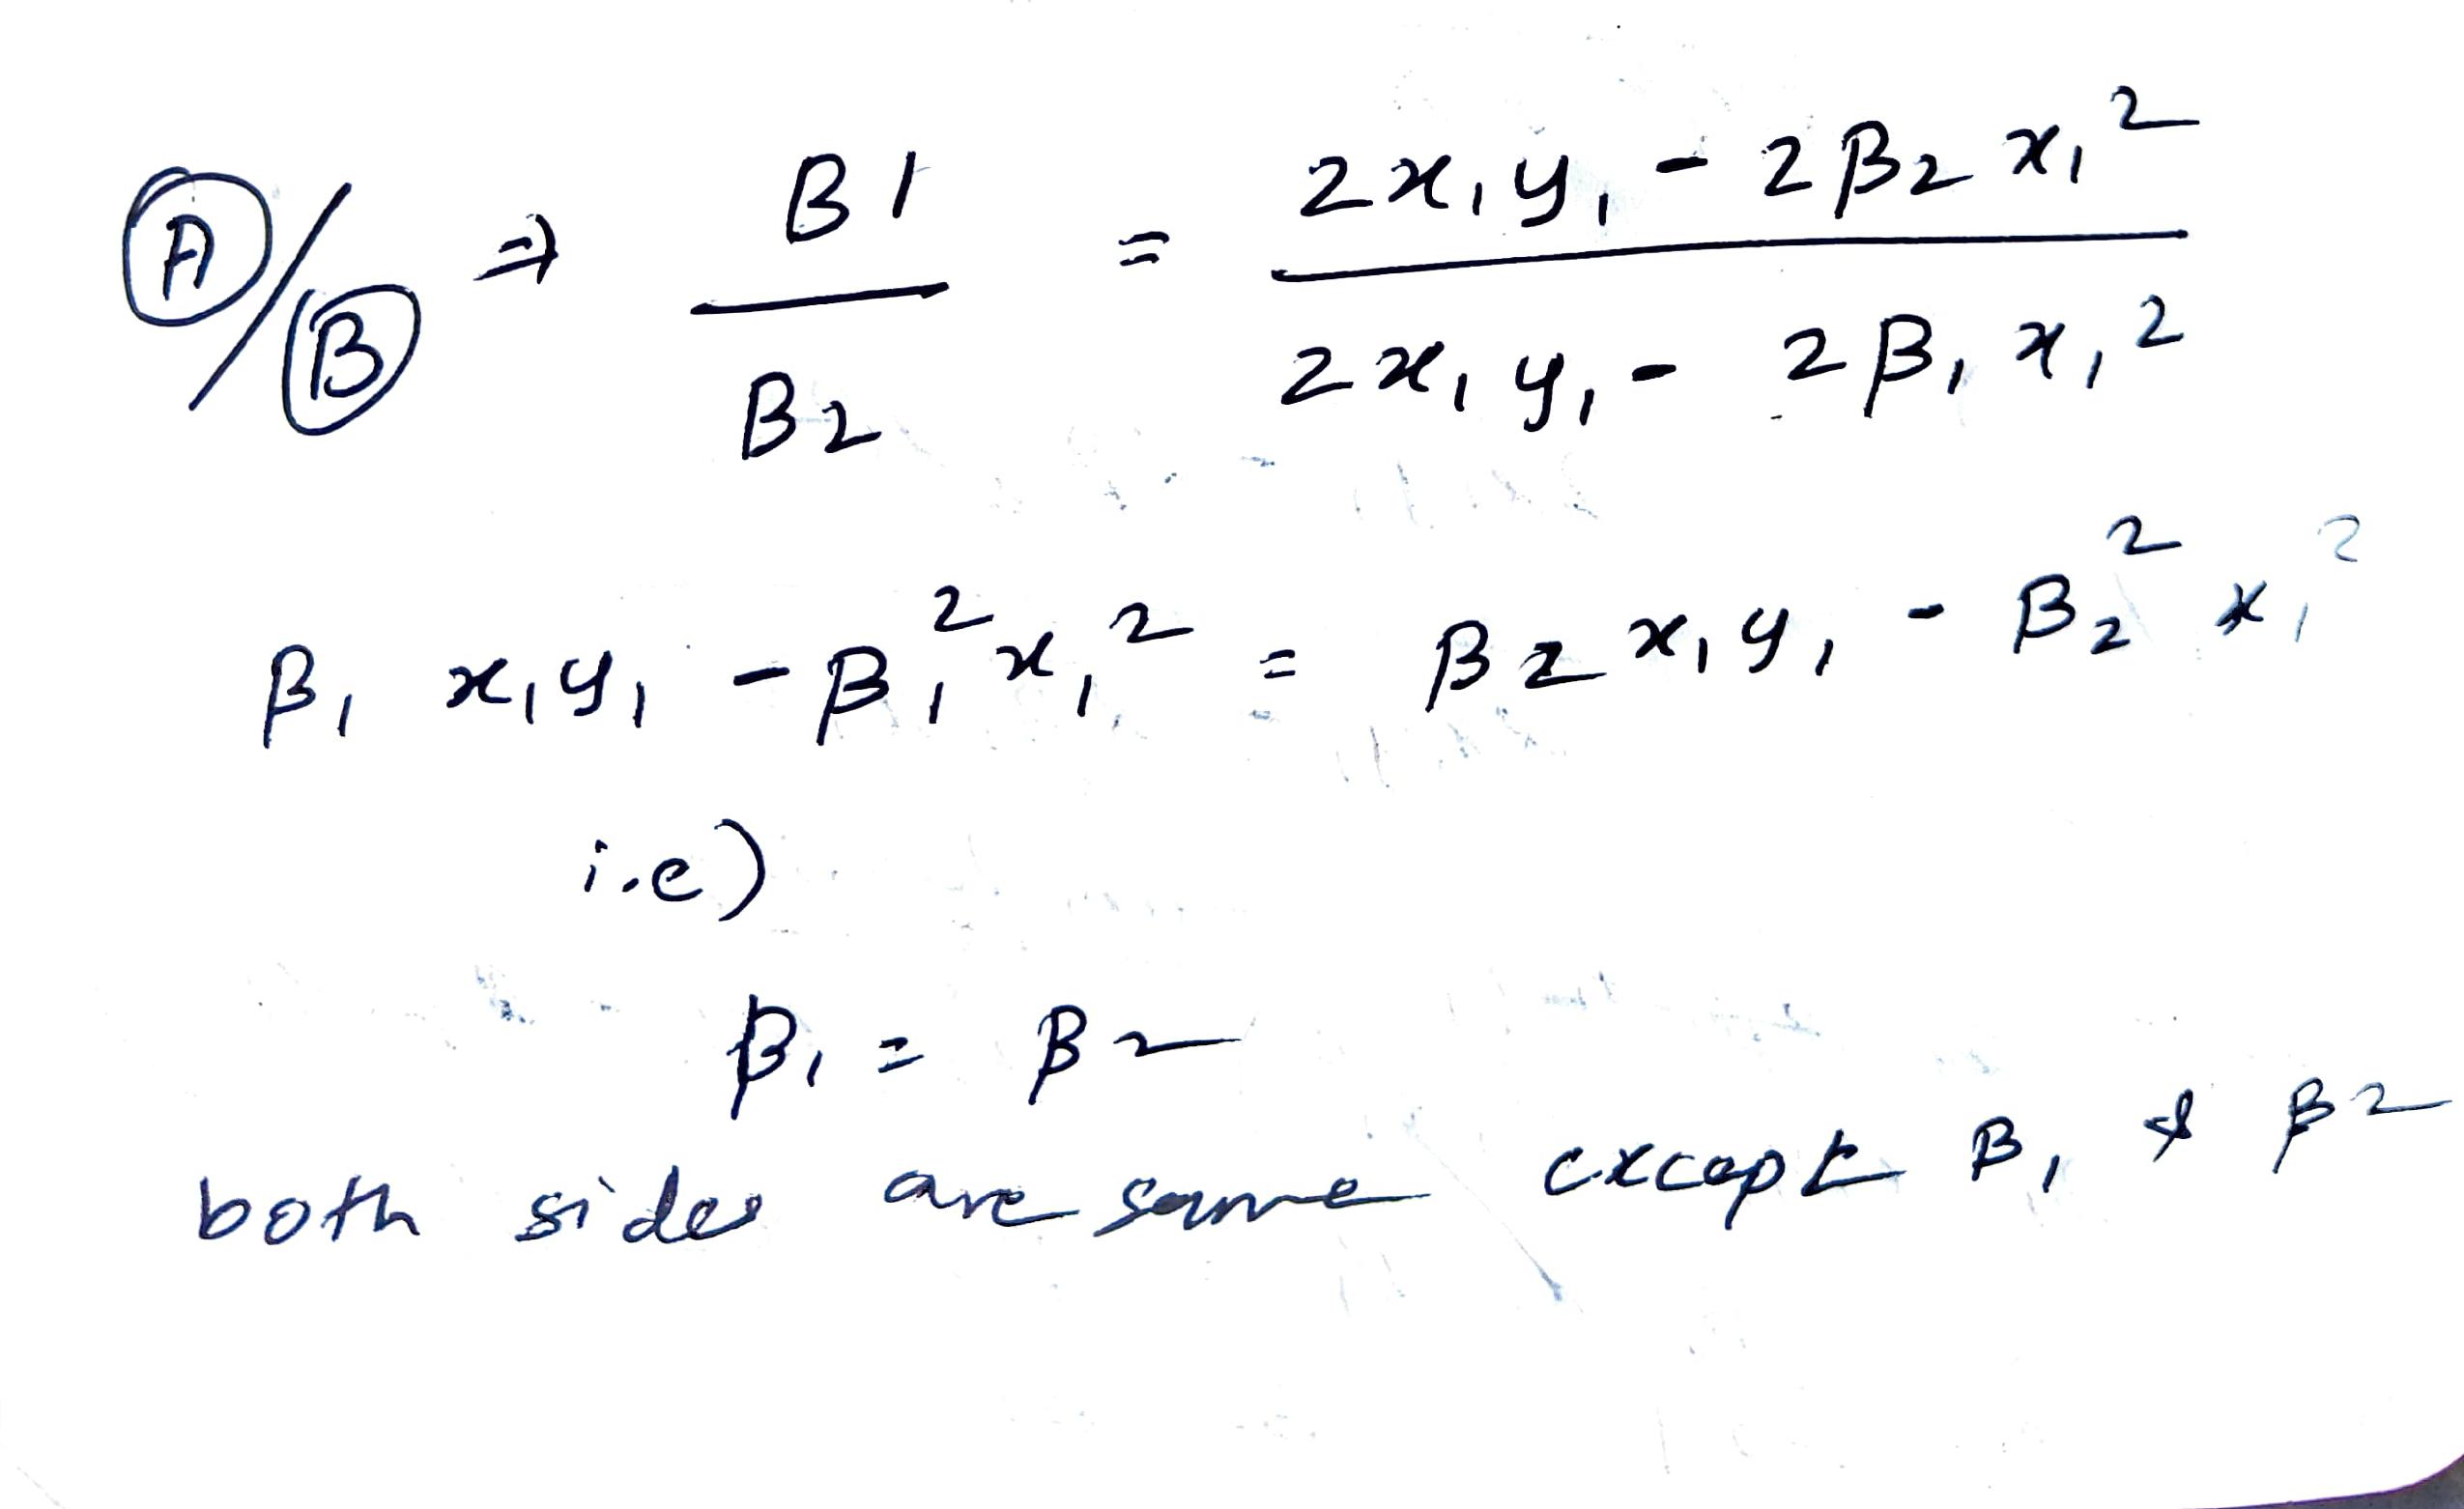 Ⓐ/Ⓑ ⇒ β1/β2 = (2x₁y₁ - 2β₂x₁²)/(2x₁y₁ - 2β₁x₁²)
β₁ x₁y₁ - β₁²x₁² = β₂x₁y₁ - β₂²x₁²
i.e)
β₁ = β₂
both sides are same except β₁ & β₂